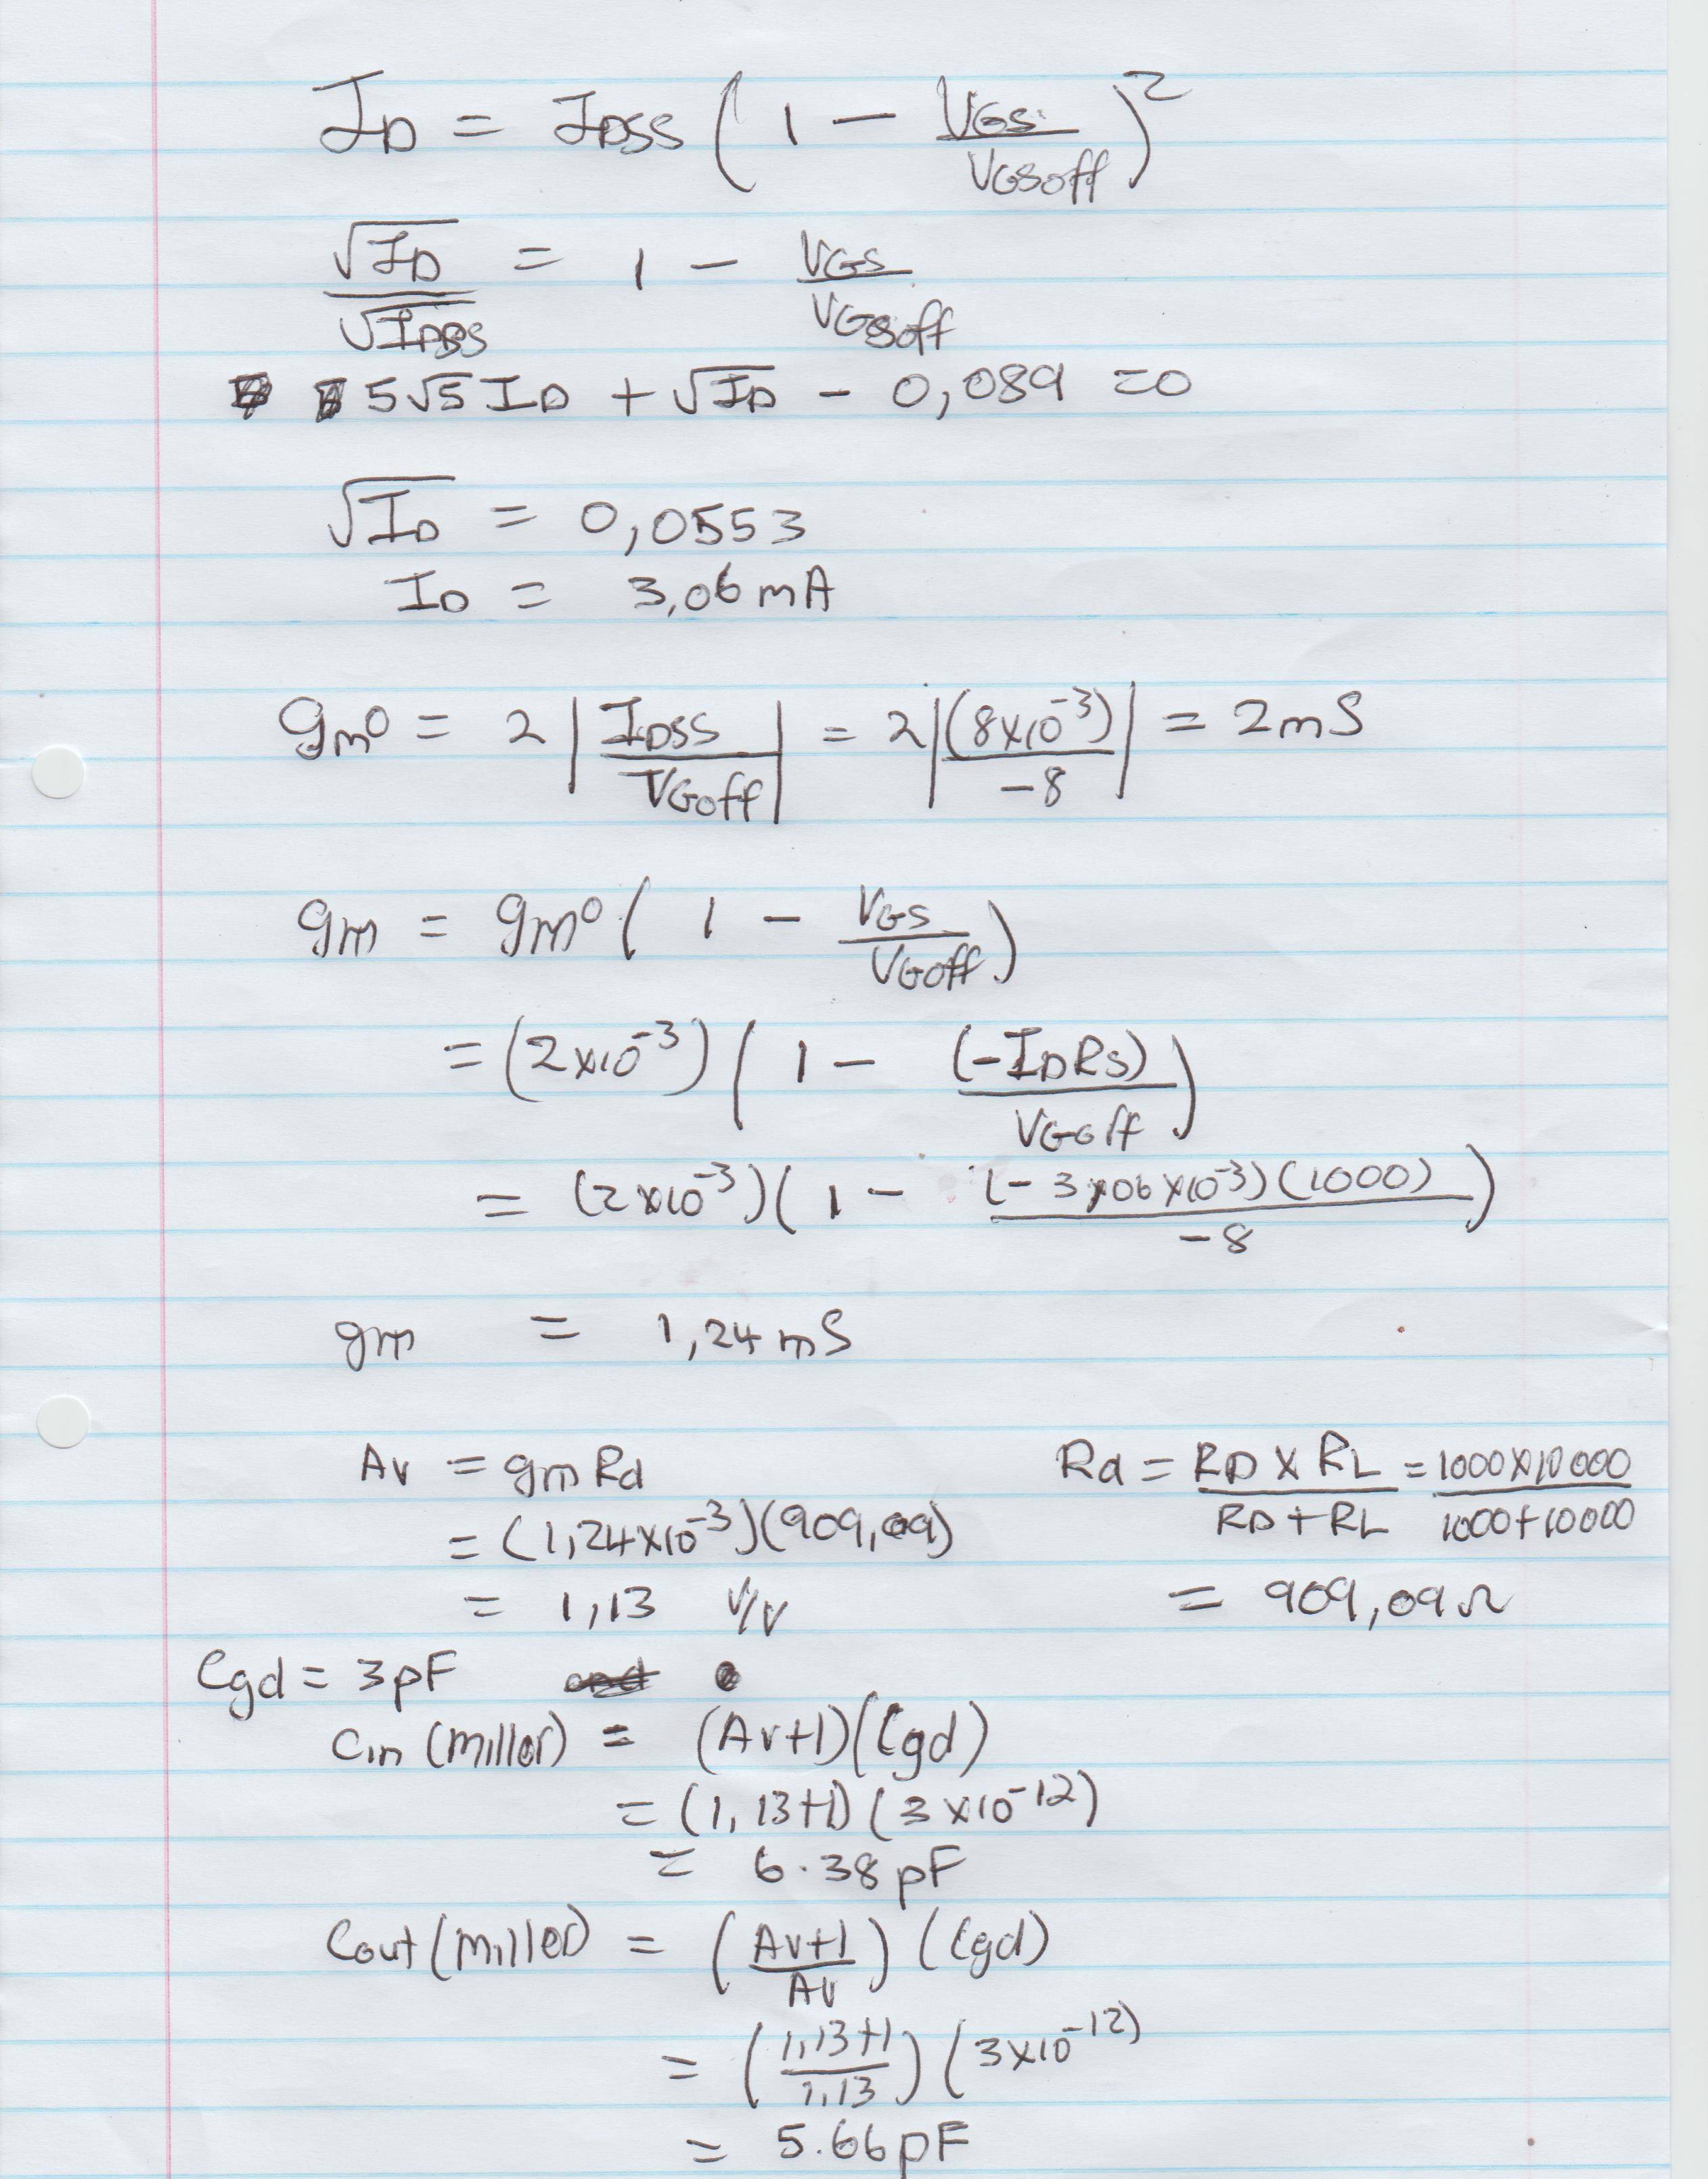 I_D = I_DSS ( 1 - V_GS / V_GSoff )²
√I_D / √I_DSS = 1 - V_GS / V_GSoff
5√5 I_D + √I_D - 0,089 = 0
√I_D = 0,0553
I_D = 3,06 mA
gm⁰ = 2 | I_DSS / V_Goff | = 2 | (8×10⁻³) / -8 | = 2mS
gm = gm⁰ ( 1 - V_GS / V_Goff )
= (2×10⁻³) ( 1 - (-I_D R_S) / V_Goff )
= (2×10⁻³) ( 1 - (-3,06×10⁻³)(1000) / -8 )
gm = 1,24 mS
Av = gm Rd
Rd = R_D × R_L / R_D + R_L = 1000×10000 / 1000+10000
= (1,24×10⁻³)(909,09)
= 1,13 V/V
= 909,09Ω
Cgd = 3pF
Cin (miller) = (Av+1)(Cgd)
= (1,13+1)(3×10⁻¹²)
= 6.38pF
Cout (miller) = ( Av+1 / Av ) (Cgd)
= ( 1,13+1 / 1,13 ) (3×10⁻¹²)
= 5.66pF